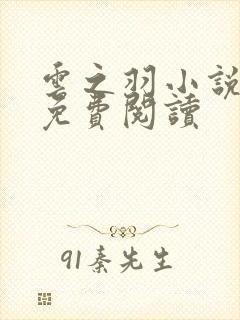 雲之羽小說
免費閱讀
91秦先生